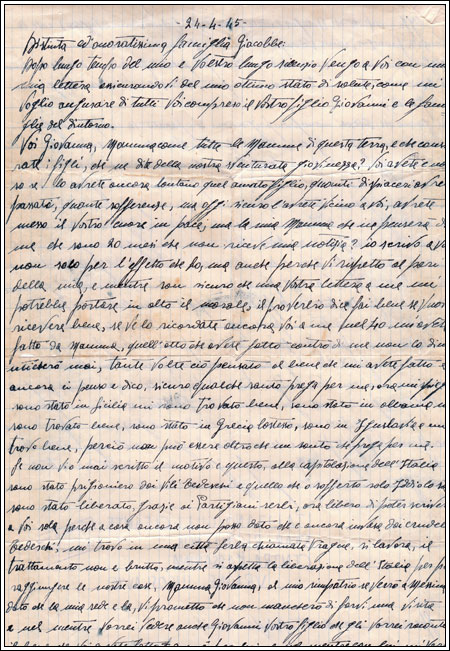 24-4-45
Distinta ed onoratissima famiglia Giacobbe:
Dopo lungo tempo del mio e vostro lungo silenzio vengo a voi con una
mia lettera assicurandovi del mio ottimo stato di salute, come mi
voglio augurare di tutti voi compreso il vostro figlio Giovanni e la fami
glia del dintorno.
Voi Giovanna, Mamma come tutte le Mamme di questa terra, e che conside
rate i figli, che ne dite della nostra sventurata giovinezza? voi avete
se lo avete ancora lontano quel amato figlio, quanti dispiaceri avrete
passato, quante sofferenze, ma oggi sicuro l'avrete vicino a voi, avrete
messo il vostro cuore in pace, ma la mia Mamma che ne penserà di
me che sono 20 mesi che non riceve mia notizia? io scrivo a voi
non solo per l'effetto che ho, ma anche perche vi rispetto al pari
della mia, e mentre son sicuro che una vostra lettera a me mi
potrebbe portare in alto il morale, il proverbio dice fai bene se vuoi
ricevere bene, se ve lo ricordate ancora voi a me nel 40 mi avete
fatto da Mamma, quell'atto che avete fatto con di me non lo dim
enticherò mai, tante volte ciò pensato al bene che mi avete fatto e
ancora ci penso e dico, sicuro qualche santo prega per me, ora
sono stato in Sicilia mi sono trovato bene, sono stato in
sono trovato bene, sono stato in Grecia lo stesso, sono in Jugoslavia e mi
trovo bene, perciò non può essere altro che un santo che prega per me.
Se non vi o mai scritto il motivo e questo, alla capitolazione dell'Italia
sono stato prigioniero dei vili tedeschi e quello che o sofferto solo Iddio lo sa
sono stato liberato, grazie ai Partigiani serbi, ora libero di poter scrivere
a voi solo perche a casa ancora non posso dato che e ancora invaso dai crudeli
tedeschi, mi trovo in una città serba chiamata si lavora, il
trattamento non e brutto, mentre si aspetta la liberazione dell'Italia per
raggiungere le nostre case, Mamma Giovanna, al mio rimpatrio se verrò a Messina
dato che la mia sede e la, vi prometto che non mancherò di farvi una visita
e nel mentre vorrei vedere anche Giovanni vostro figlio che gli vorrei raccontare